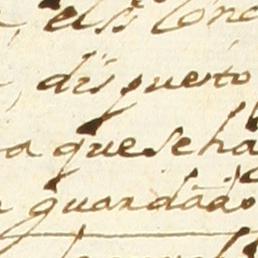 , els Conc
, dispuesto
a que se ha
guardado